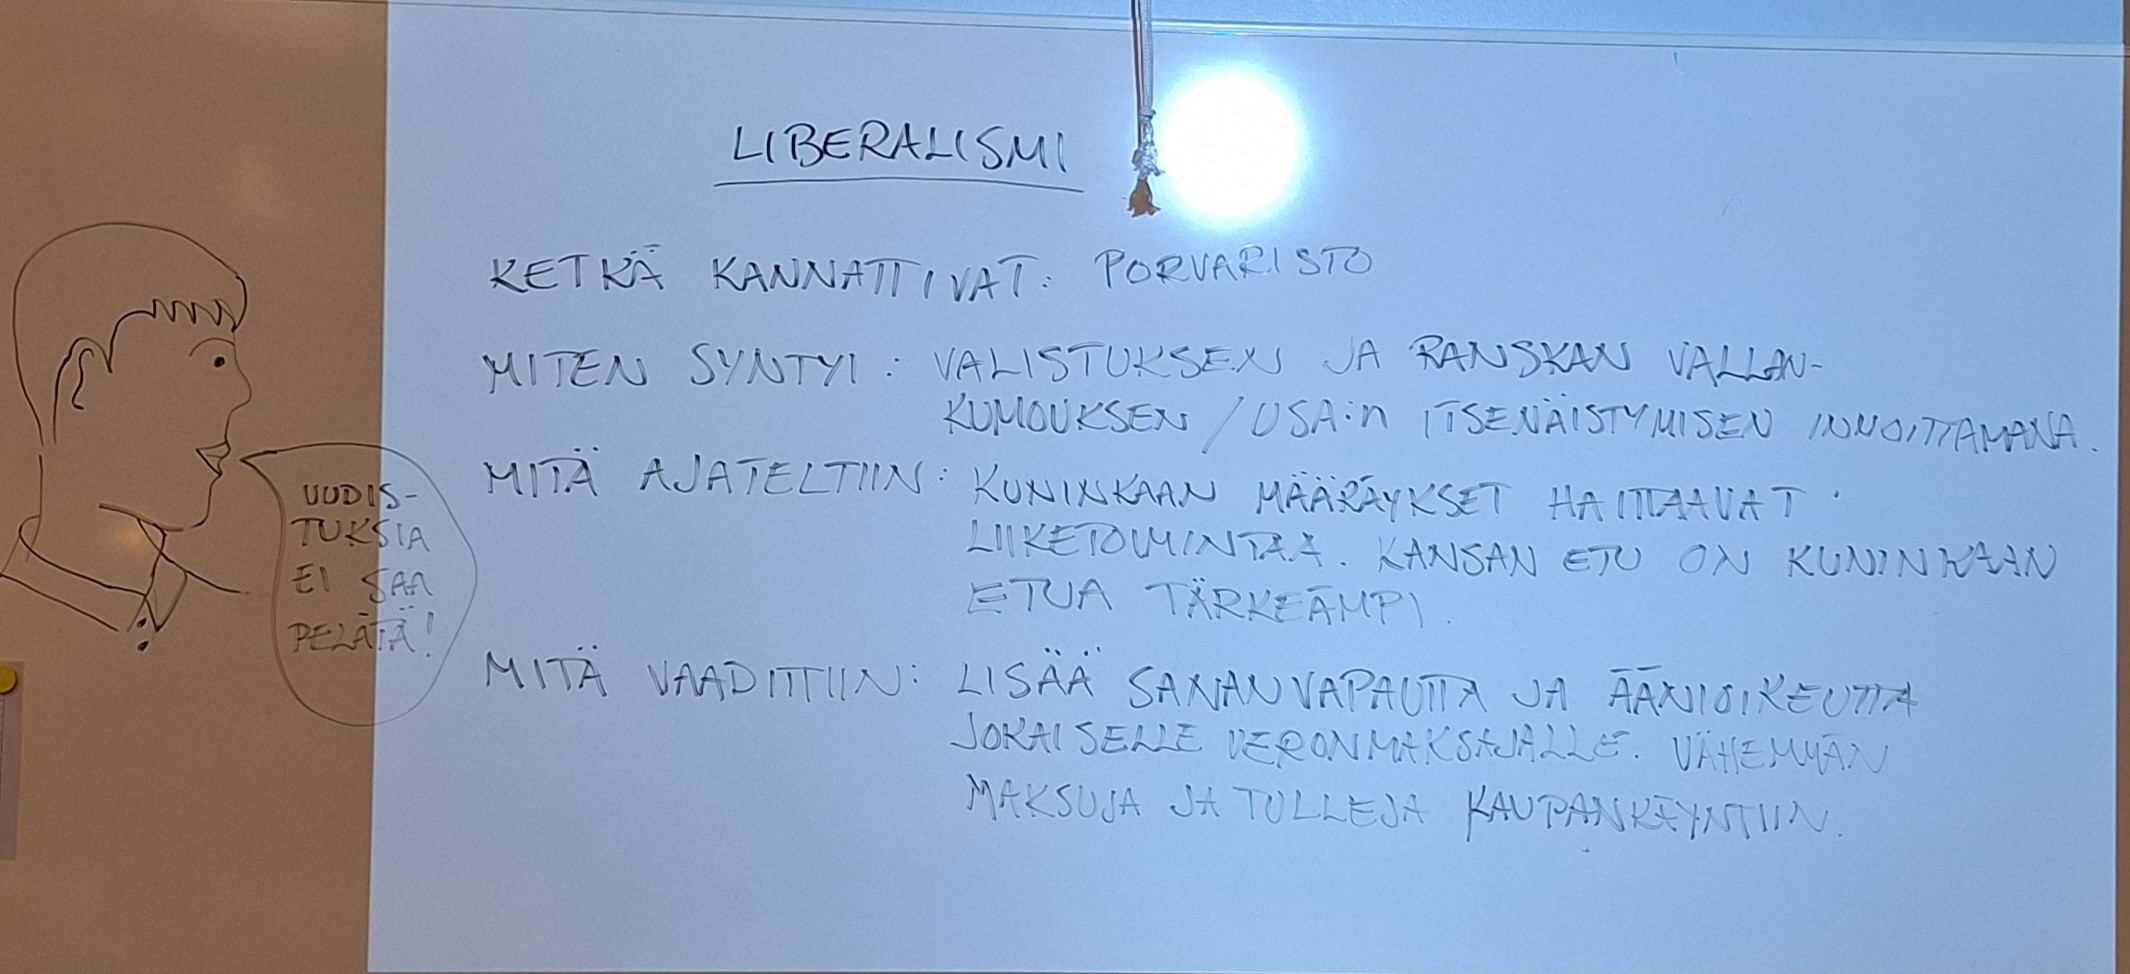 LIBERALISMI
KETKÄ KANNATTIVAT: PORVARISTO
MITEN SYNTYI: VALISTUKSEN JA RANSKAN VALLAN-
KUMOUKSEN / USA:n ITSENÄISTYMISEN INNOITTAMANA.
MITÄ AJATELTIIN: KUNINKAAN MÄÄRÄYKSET HAITTAAVAT
LIIKETOIMINTAA. KANSAN ETU ON KUNINKAAN
ETUA TÄRKEÄMPI.
MITÄ VAADITTIIN: LISÄÄ SANANVAPAUTTA JA ÄÄNIOIKEUTTA
JOKAISELLE VERONMAKSAJALLE. VÄHEMMÄN
MAKSUJA JA TULLEJA KAUPANKÄYNTIIN.
UUDIS-
TUKSIA
EI SAA
PELÄTÄ!